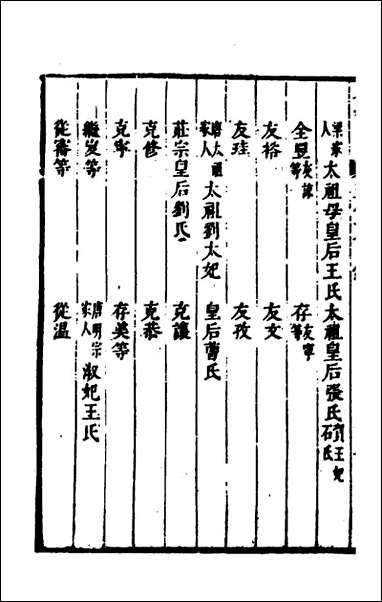 梁家人太祖母皇后王氏 太祖皇后張氏 王妃石氏
全昱友諒等 存友寧等
友裕 友文
友珪 友孜
唐太祖家人太祖劉太妃 皇后曹氏
莊宗皇后劉氏 克讓
克修 克恭
克寧 存美等
繼岌等 唐明宗家人淑妃王氏
從審等 從温